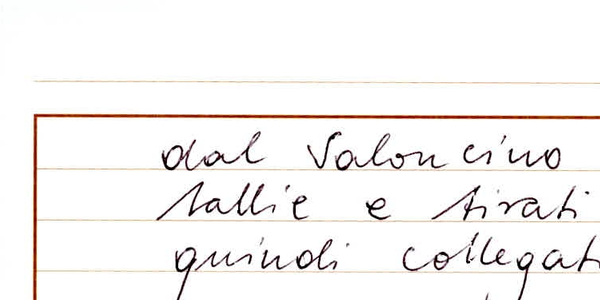 dal Saloncino
tallie e tirati
quindi collegat